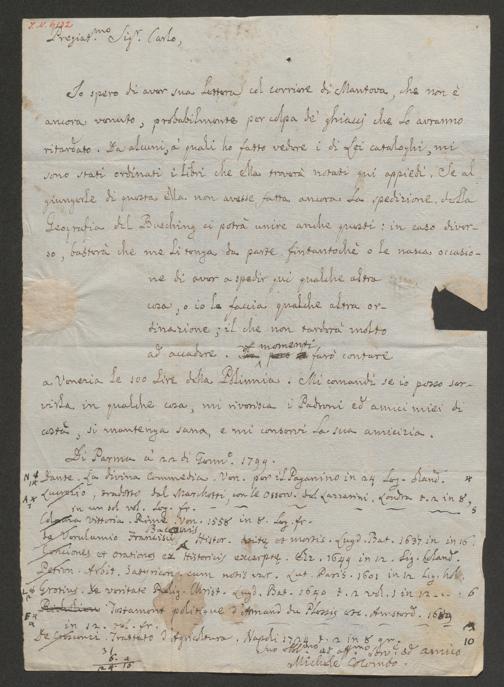 Pregiat.mo Sig.r Carlo,
Io spero di aver sua lettera col corriere di Mantova, che non è
ancora venuto, probabilmente per colpa de' ghiacci che lo avranno
ritardato. Da alcuni, a' quali ho fatto vedere i di Lei cataloghi, mi
sono stati ordinati i libri che ella troverà notati qui appiedi. Se al
giungerle di questa ella non avesse fatta ancora la spedizione della
Geografia del Buesching ci potrà unire anche questi: in caso diver-
so, basterà che me li tenga da parte fintantochè o le nasca occasio-
ne di aver a spedir qui qualche altra
cosa, o io le faccia qualche altra or-
dinazione; il che non tarderà molto
ad accadere. momenti farò contare
a Venezia le 100 Lire della Polimnia. Mi comandi se io posso ser-
virla in qualche cosa, mi riverisca i Padroni ed amici miei di
costà, si mantenga sana, e mi conservi la sua amicizia.
Di Parma à 22 di Genn.o 1794.
Dante La divina Commedia. Ven. per il Paganino in 24 Leg. Oland.
Lucrezio, tradotto dal Marchetti, con le Osserv. del Lazzarini. Londra t. 2 in 8.
in un sol vol. leg. fr.
Colonna Vittoria. Rime Ven. 1558 in 8. Leg. fr.
Baconis
de Verulamio Francisci Histor. vitæ et mortis. Lugd. Bat. 1637 in 16.
Conciones et Orationes ex Historicis excerptæ. Elz. 1649 in 12. Leg. Oland.
Petron. Arbit. Satyricon, cum notis var. Lut. Paris. 1601 in 12 Leg.
Grotius de Veritate Relig. Christ. Lugd. Bat. 1640 t. 2 vol. 1 in 12 6
Testament politique d'Armand du Plessis etc. Amsterd.
in 12. vol. fr.
De Cosimi Trattato d'Agricoltura, Napoli t. 2 in 8 gr. 10
Suo ed amico
Michele Colombo.